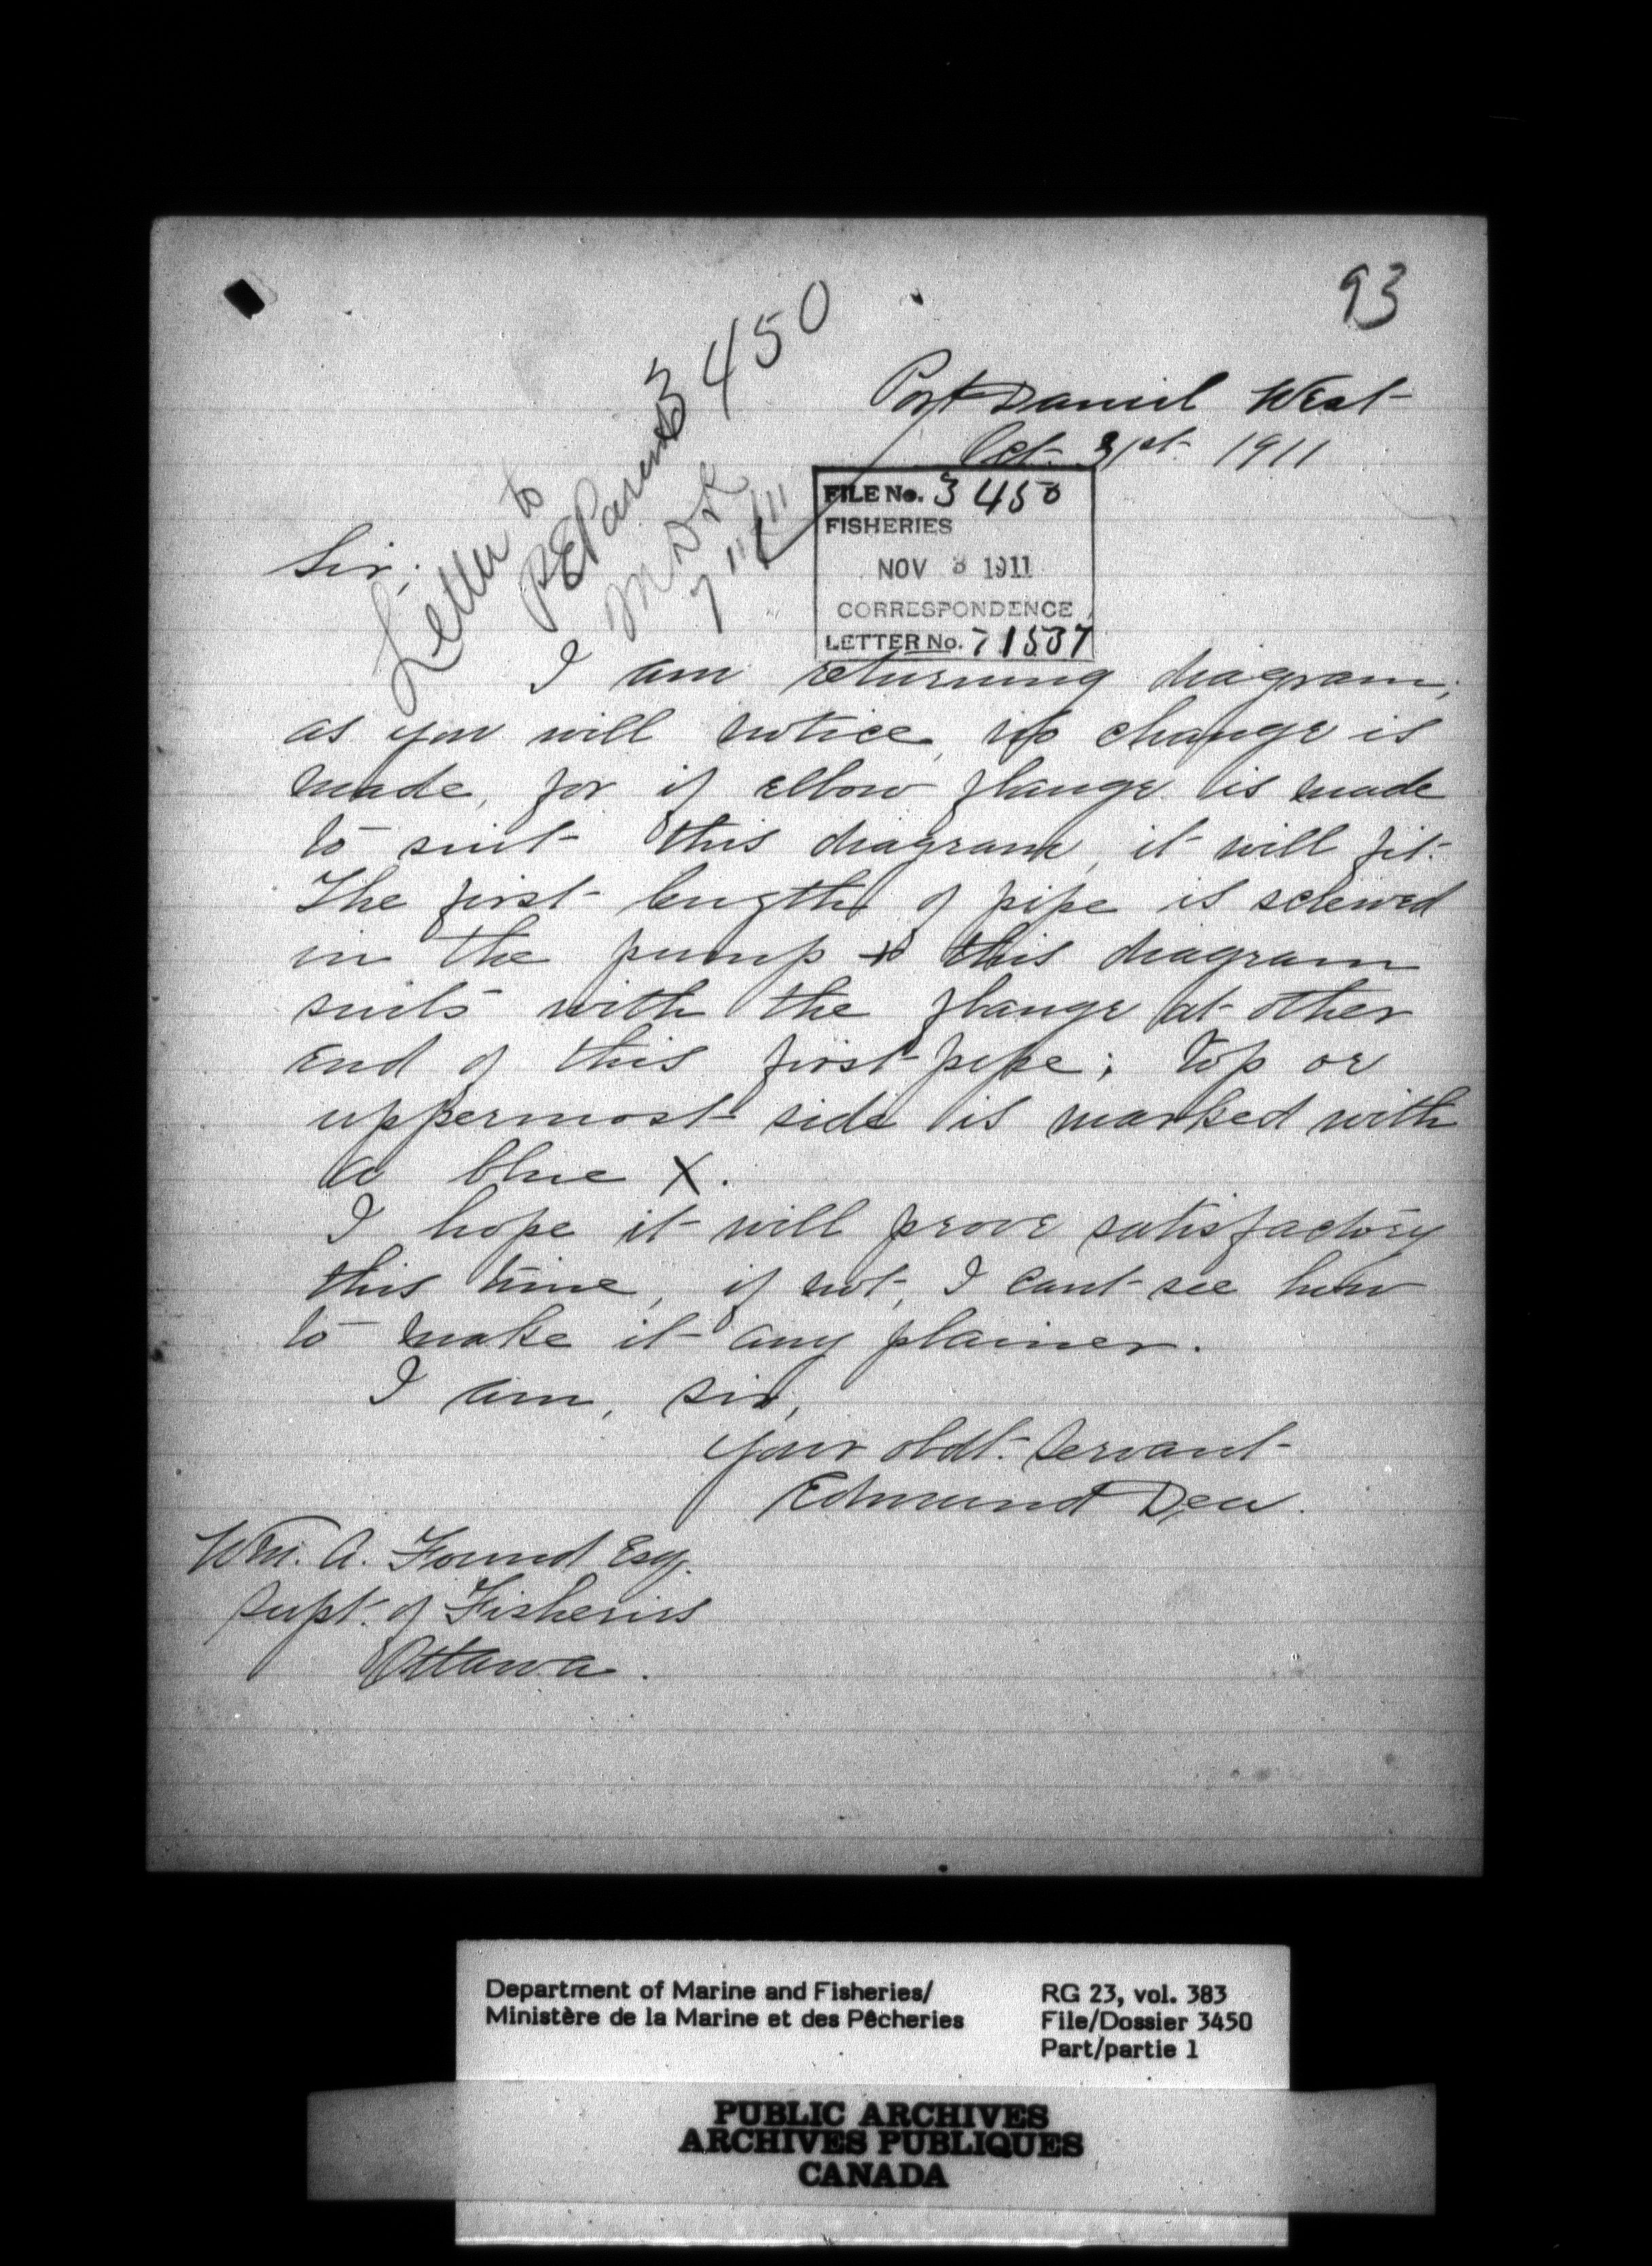 93
3450
Port Daniel West
Oct. 31st 1911
Letter to
P.E. Parent
7/11/11
FILE No. 3450
FISHERIES
NOV 3 1911
CORRESPONDENCE
LETTER No. 71537
Sir;
I am returning diagram;
as you will notice, no change is
made, for if elbow flange is made
to suit this diagram, it will fit.
The first length of pipe is screwed
in the pump & this diagram
suits with the flange at other
end of this first pipe; top or
uppermost side is marked with
a blue X.
I hope it will prove satisfactory
this time, if not, I cant see how
to make it any plainer.
I am, sir,
your obdt. servant
Edmund Dea.
Wm. A. Found Esq.
Supt. of Fisheries
Ottawa.
Department of Marine and Fisheries/
Ministère de la Marine et des Pêcheries
RG 23, vol. 383
File/Dossier 3450
Part/partie 1
PUBLIC ARCHIVES
ARCHIVES PUBLIQUES
CANADA